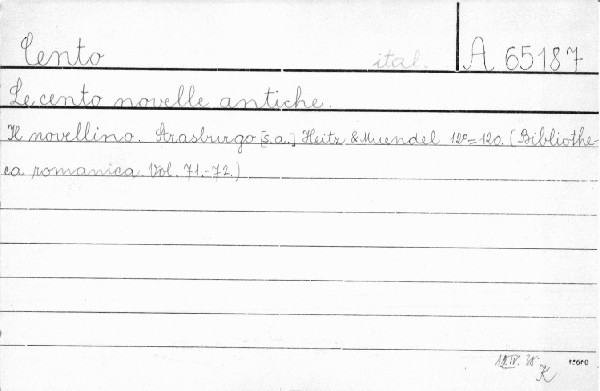 Cento ital. A 65187
Le cento novelle antiche.
Il novellino. Strasburgo [s.a.] Heitz & Muendel 12º=120. (Bibliothe-
ca romanica. Vol. 71.-72.)
K